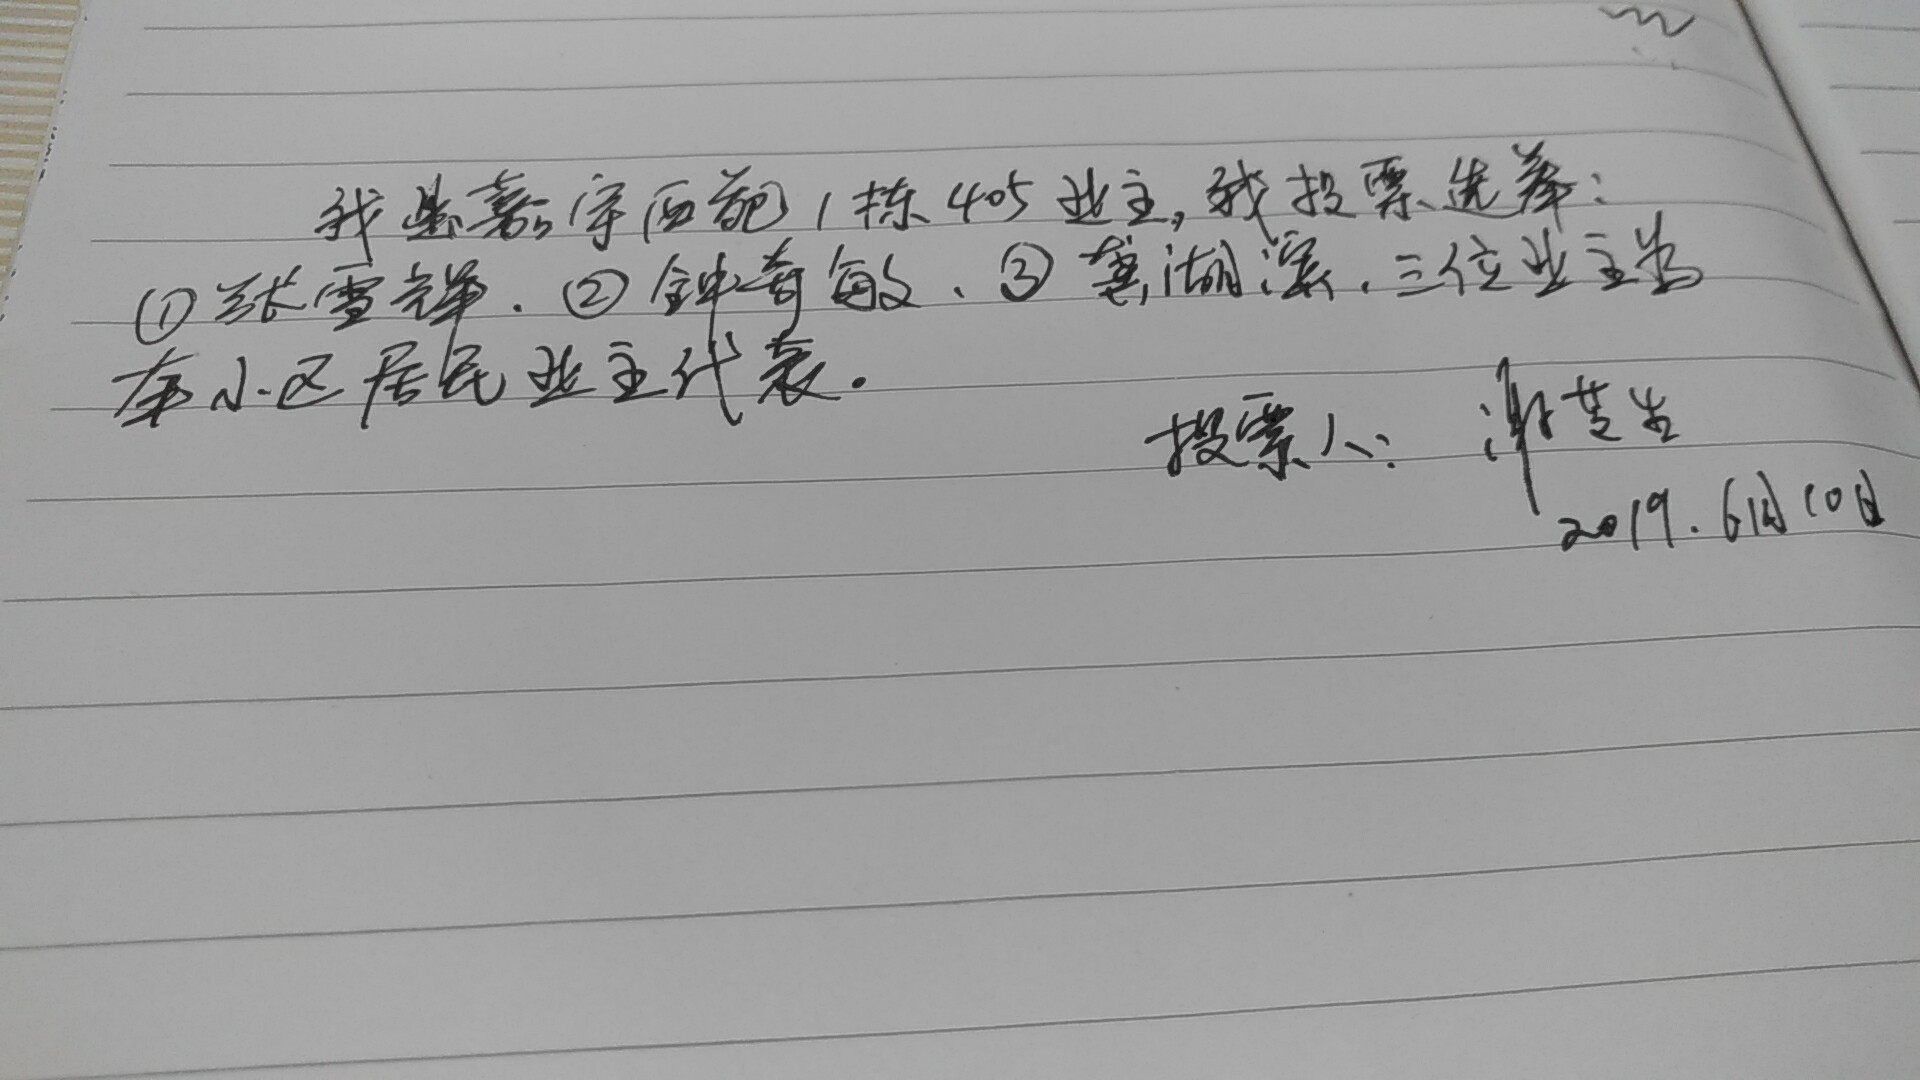 我是嘉宇西苑1栋405业主,我投票选举:
①张雪辉.②钟奇敏、③龚湖滨.三位业主为
本小区居民业主代表.
投票人: 谢芝生
2019.6月10日